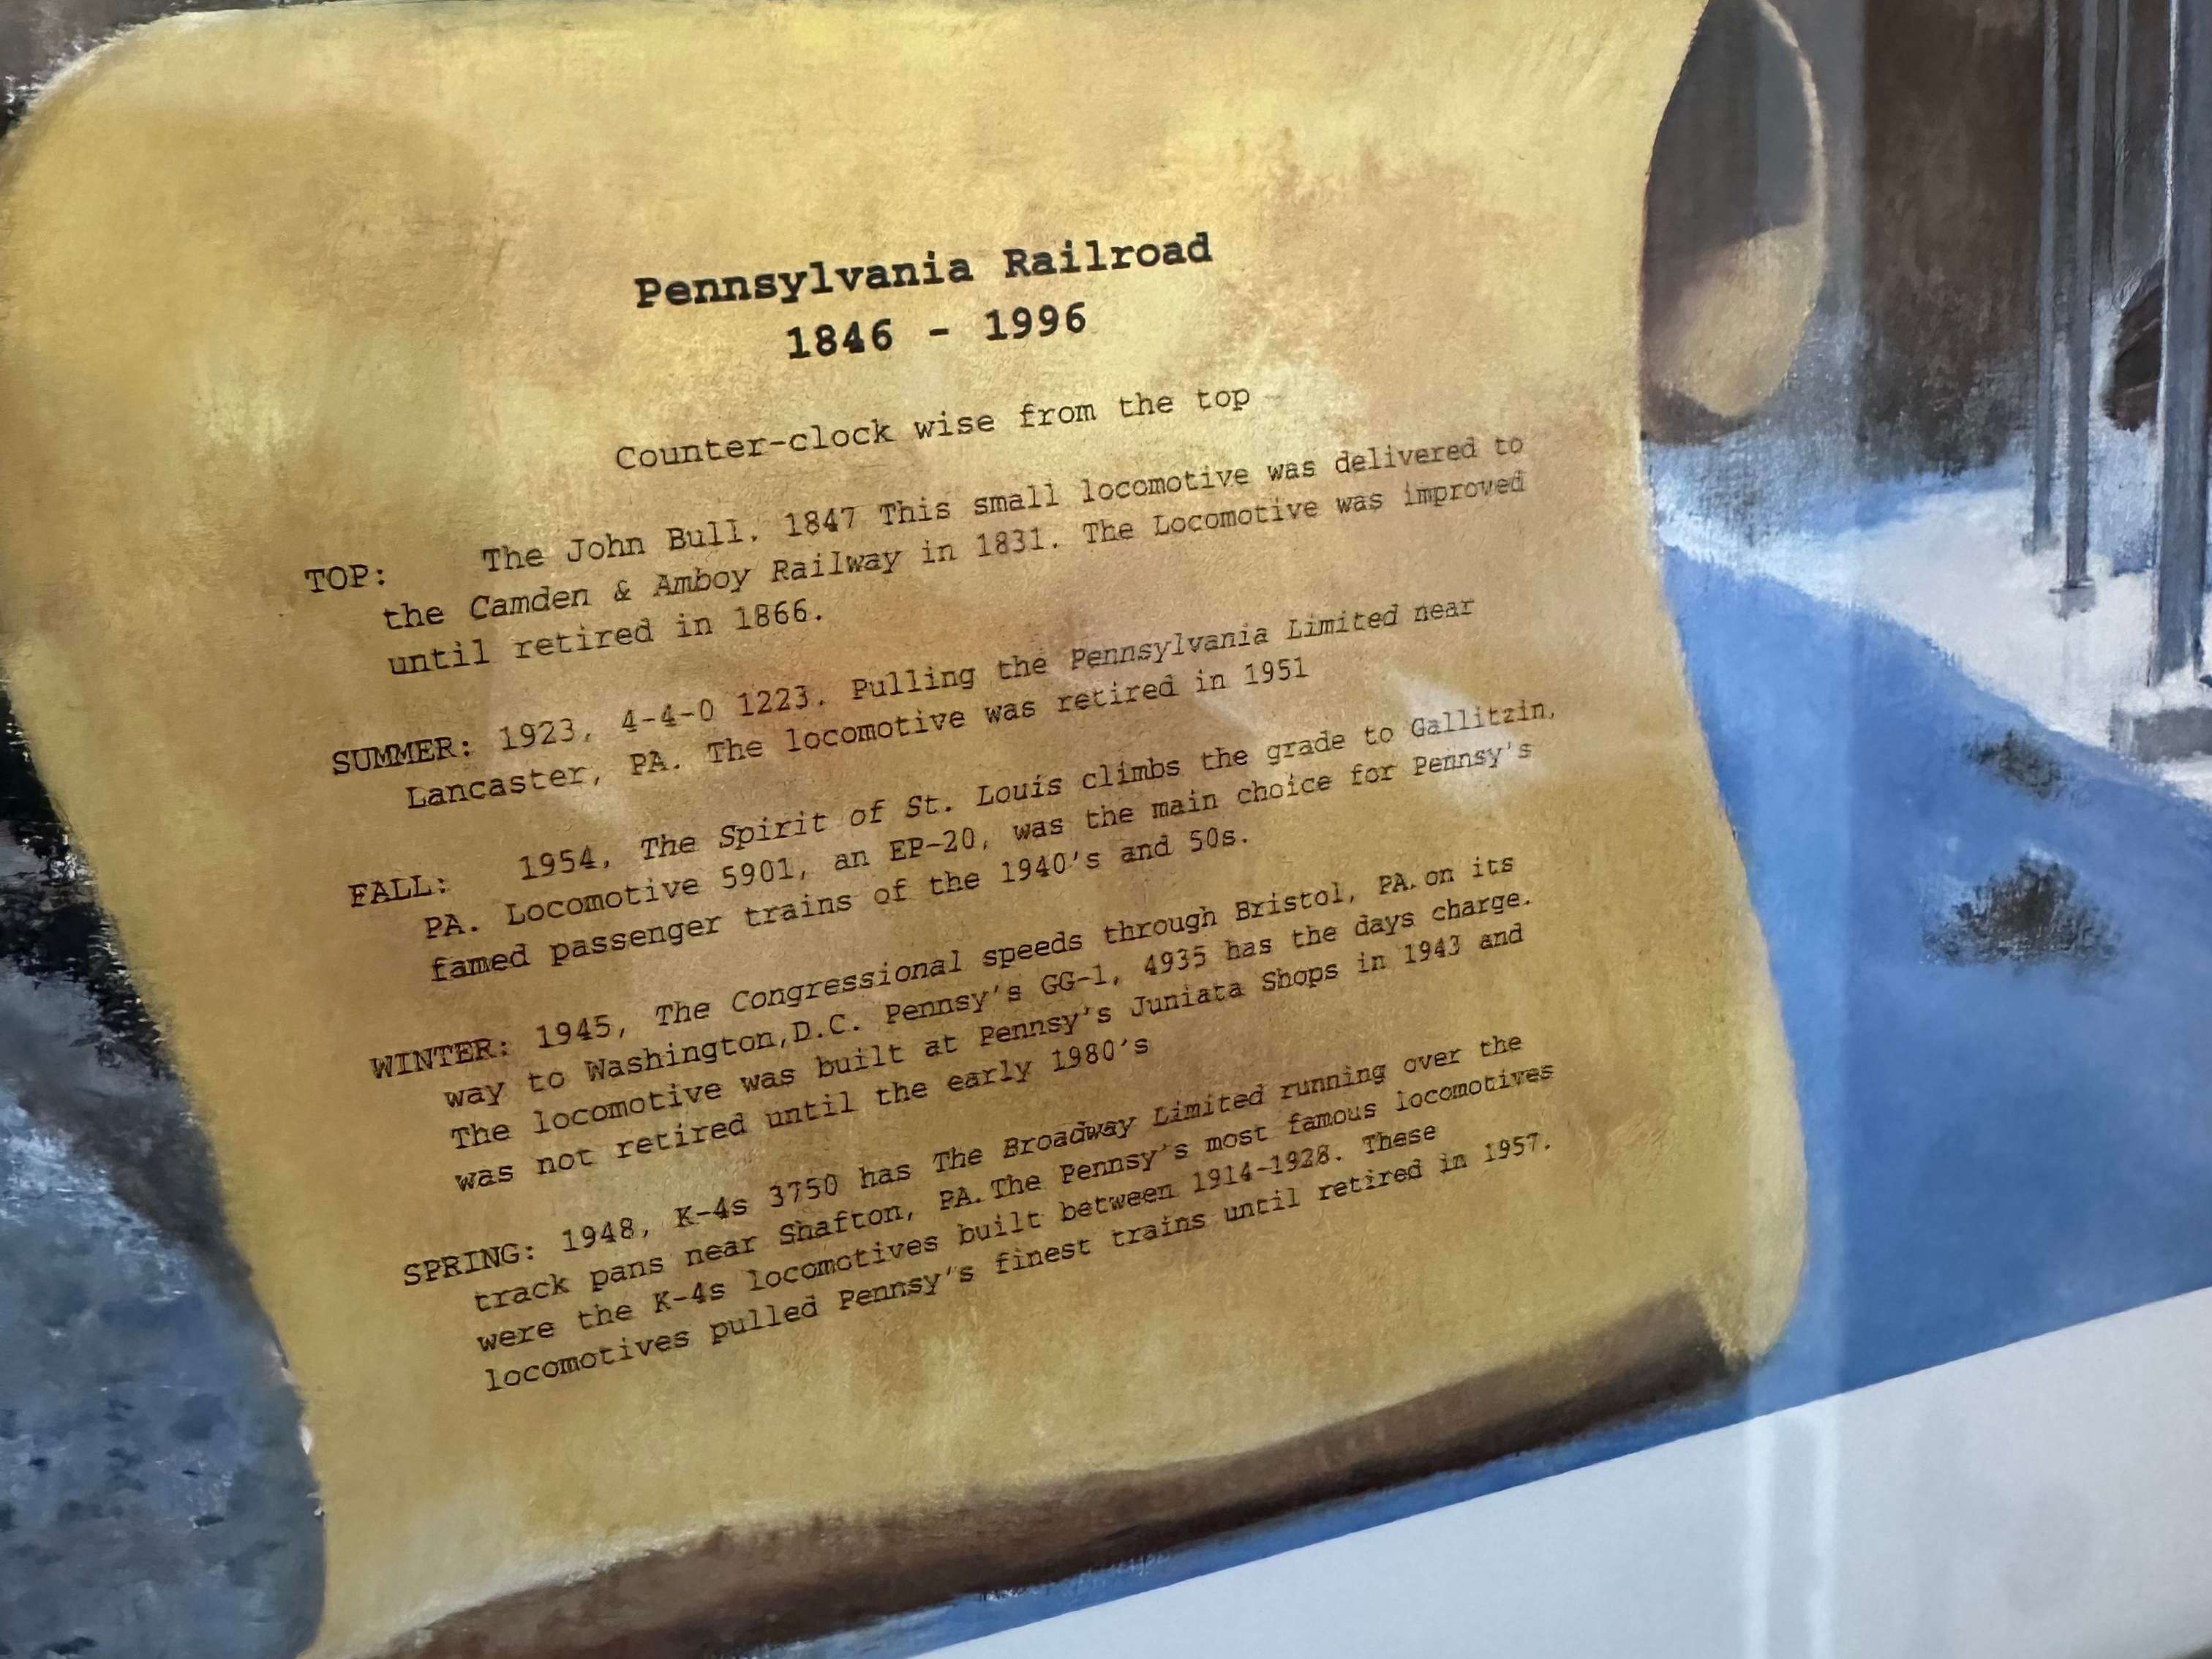 Pennsylvania Railroad
1846 - 1996
Counter-clock wise from the top
TOP: The John Bull. 1847 This small locomotive was delivered to
the Camden & Amboy Railway in 1831. The Locomotive was improved
until retired in 1866.
SUMMER: 1923, 4-4-0 1223. Pulling the Pennsylvania Limited near
Lancaster, PA. The locomotive was retired in 1951
FALL: 1954, The Spirit of St. Louis climbs the grade to Gallitzin,
PA. Locomotive 5901, an EP-20, was the main choice for Pennsy's
famed passenger trains of the 1940's and 50s.
WINTER: 1945, The Congressional speeds through Bristol, PA.on its
way to Washington,D.C. Pennsy's GG-1, 4935 has the days charge.
The locomotive was built at Pennsy's Juniata Shops in 1943 and
was not retired until the early 1980's
SPRING: 1948, K-4s 3750 has The Broadway Limited running over the
track pans near Shafton, PA.The Pennsy's most famous locomotives
were the K-4s locomotives built between 1914-1928. These
locomotives pulled Pennsy's finest trains until retired in 1957.